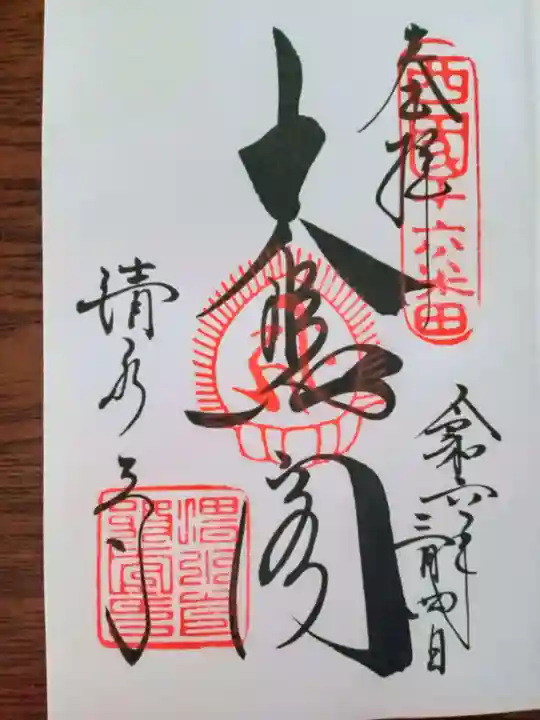 奉拝
西国十六番
大悲閣
令和六年三月四日
清水寺